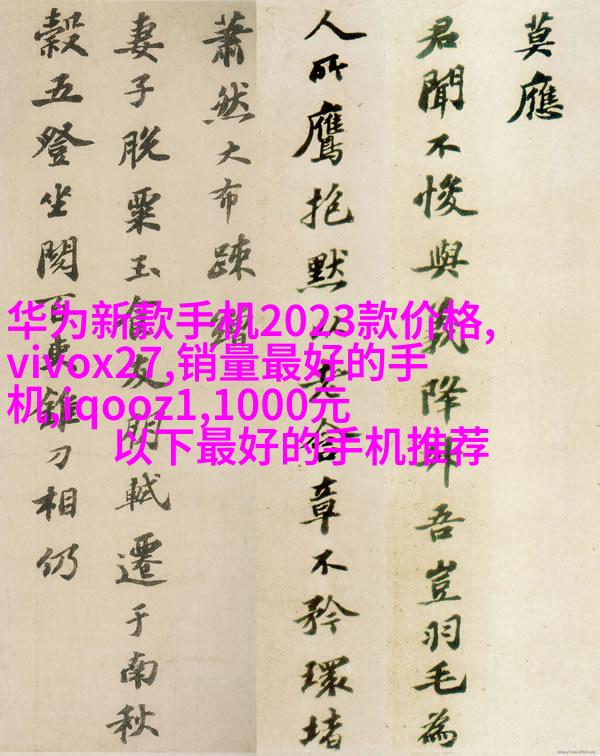 莫應
君聞不悛與義降升吾豈羽毛為
人所鷹抱默以老含章不矜環堵
蕭然大布疎繒
妻子脫粟玉食友朋軾遷于南秋
穀五登坐閱百錐刀相仍
华为新款手机2023款价格,
vivox27,销量最好的手
机,iqooz1,1000元
以下最好的手机推荐